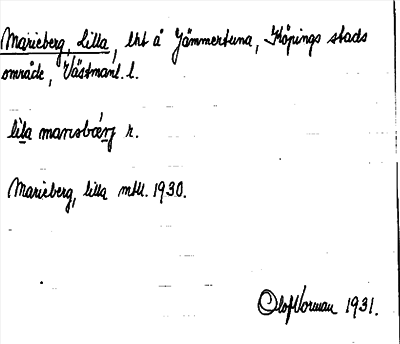 Marieberg, Lilla, lht å Jämmertuna, Köpings stads
område, Västmanl. l.
lìla marisbærj r.
Marieberg, lilla mtll. 1930.
Olof Norman 1931.